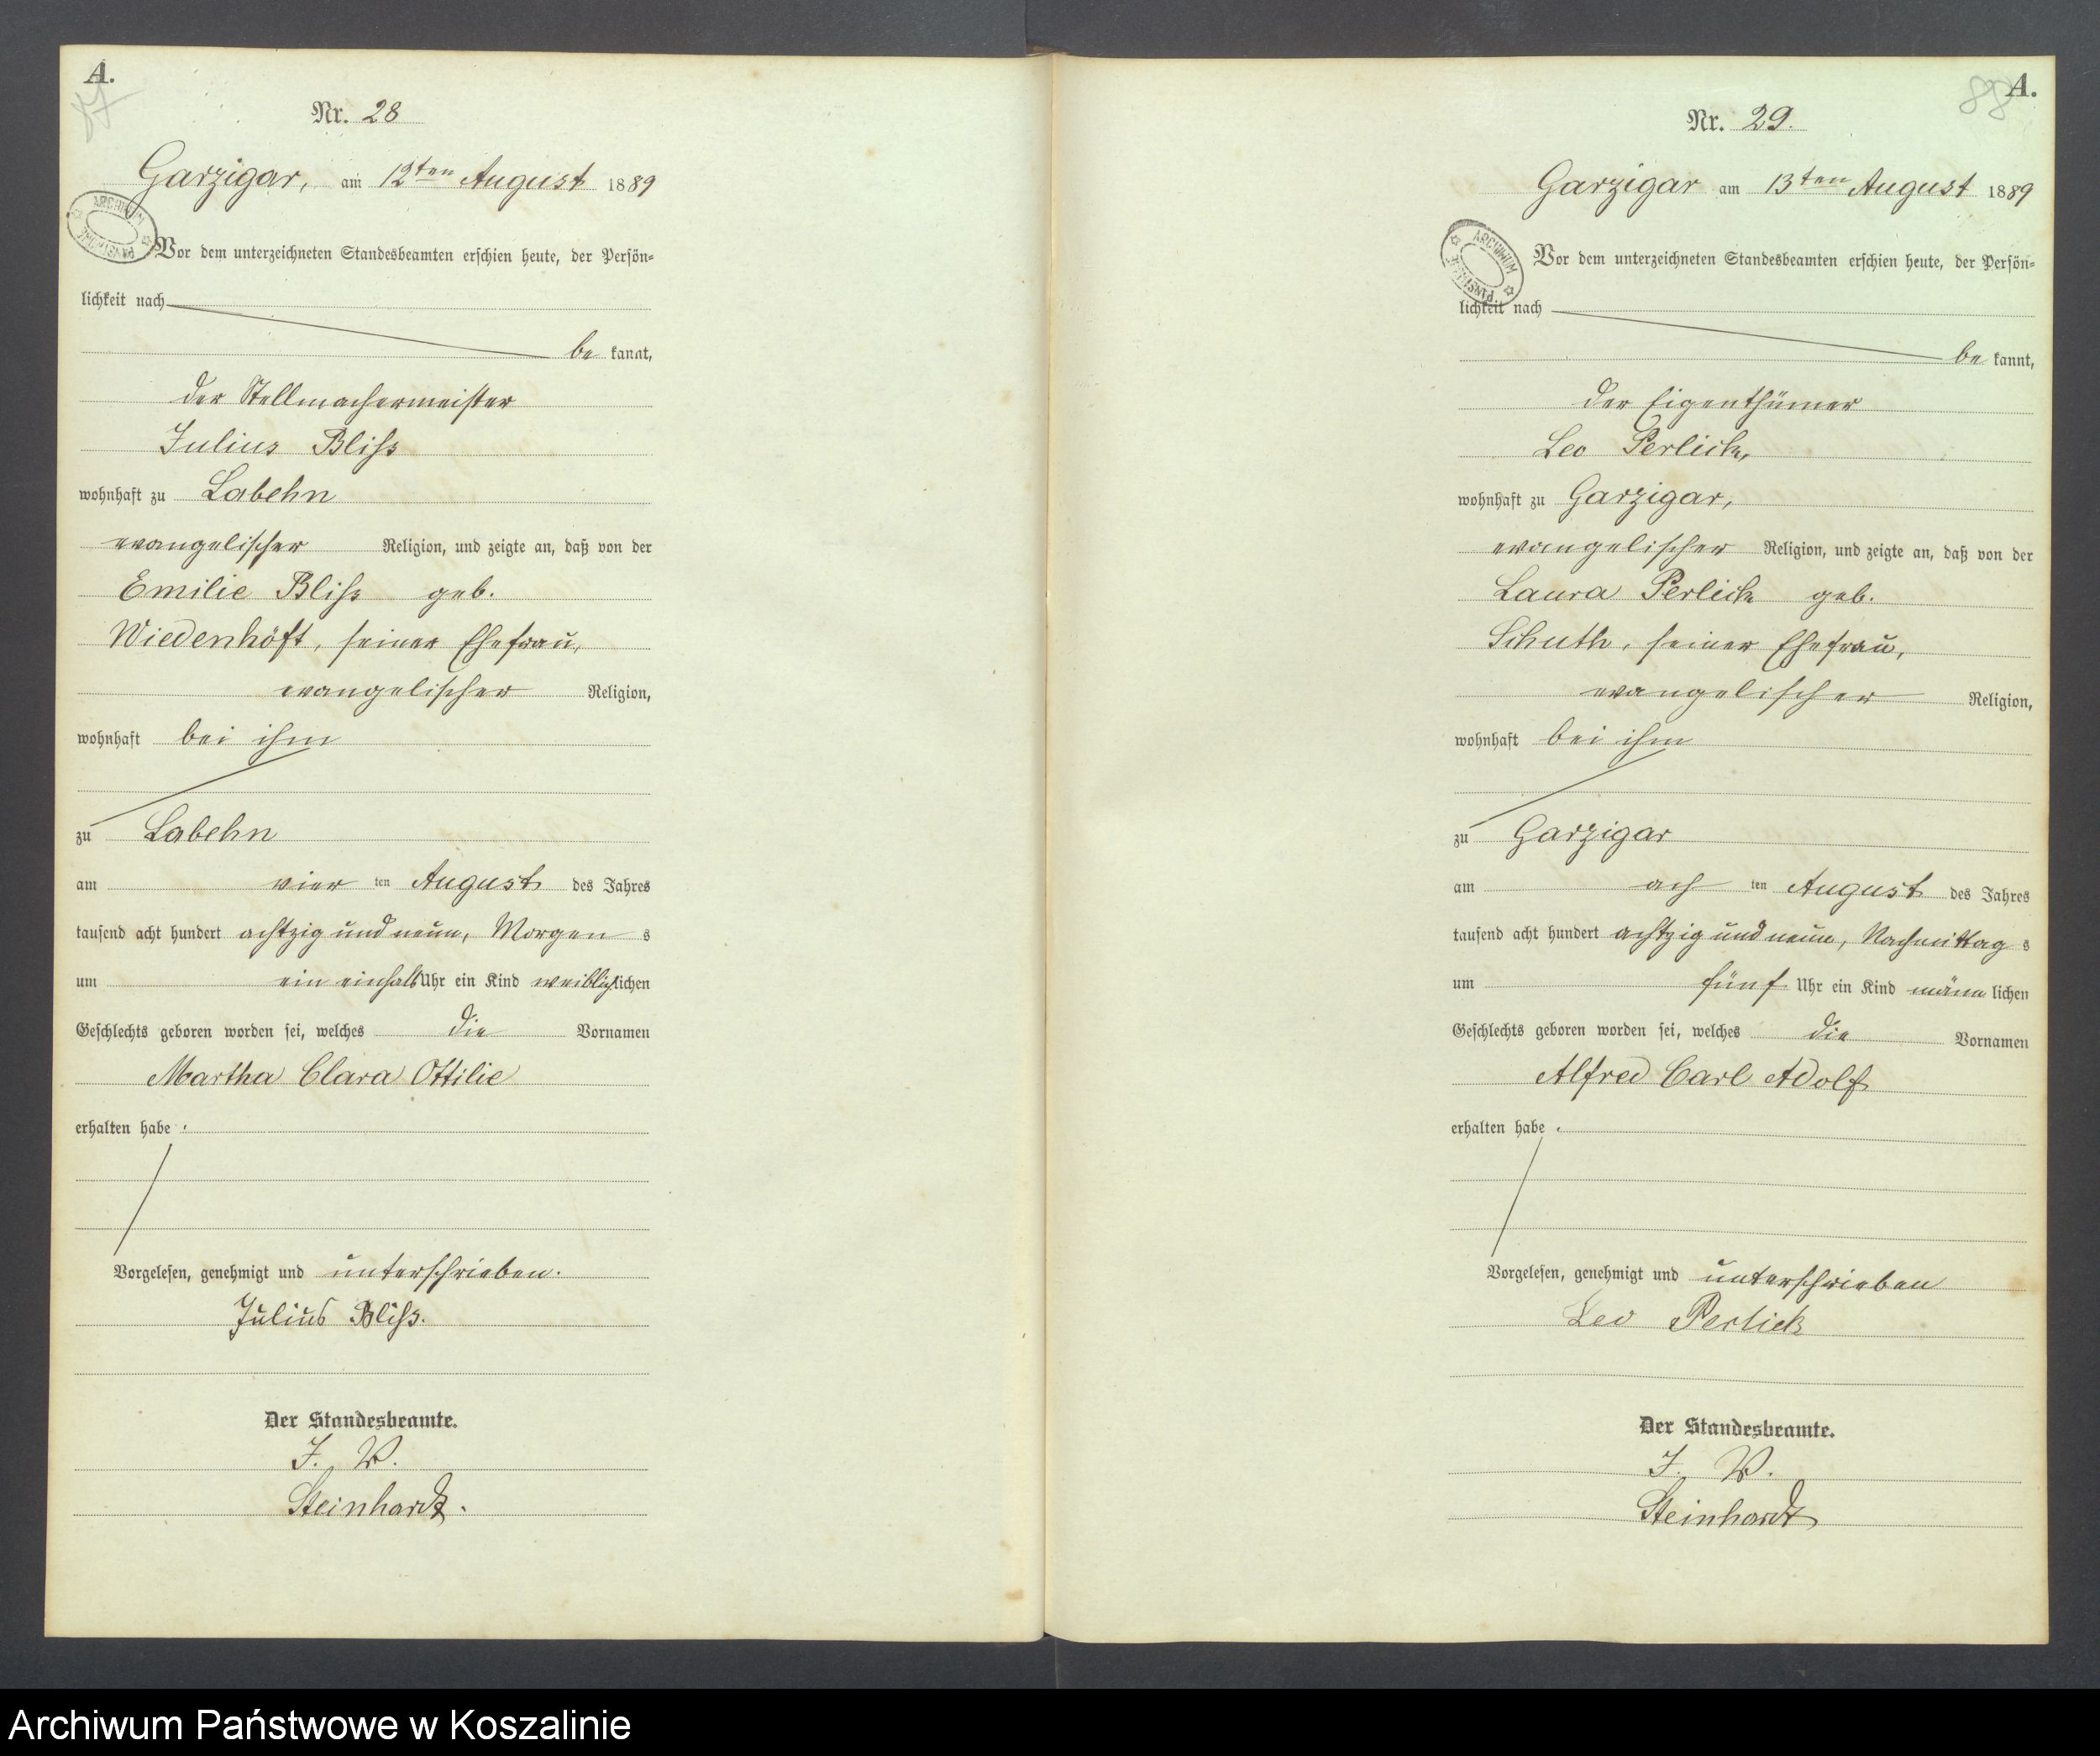 A.
87
Nr. 28
Garzigar, am 12ten August 1889
ARCHIWUM PAŃSTWOWE
Vor dem unterzeichneten Standesbeamten erschien heute, der Persön=
lichkeit nach
be kannt,
der Stellmachermeister
Julius Bliß
wohnhaft zu Labehn
evangelischer Religion, und zeigte an, daß von der
Emilie Bliß geb.
Wiedenhöft, seiner Ehefrau,
evangelischer Religion,
wohnhaft bei ihm
zu Labehn
am vier ten August des Jahres
tausend acht hundert achtzig und neun, Morgen s
um ein einhalb Uhr ein Kind weiblichlichen
Geschlechts geboren worden sei, welches die Vornamen
Martha Clara Ottilie
erhalten habe.
Vorgelesen, genehmigt und unterschrieben.
Julius Bliß.
Der Standesbeamte.
J. V.
Steinhardt.
A.
88
Nr. 29.
Garzigar am 13ten August 1889
ARCHIWUM PAŃSTWOWE
Vor dem unterzeichneten Standesbeamten erschien heute, der Persön=
lichkeit nach
be kannt,
der Eigenthümer
Leo Perlick,
wohnhaft zu Garzigar,
evangelischer Religion, und zeigte an, daß von der
Laura Perlick geb.
Schuth, seiner Ehefrau,
evangelischer Religion,
wohnhaft bei ihm
zu Garzigar
am ach ten August des Jahres
tausend acht hundert achtzig und neun, Nachmittag s
um fünf Uhr ein Kind männ lichen
Geschlechts geboren worden sei, welches die Vornamen
Alfred Carl Adolf
erhalten habe.
Vorgelesen, genehmigt und unterschrieben
Leo Perlick
Der Standesbeamte.
J. V.
Steinhardt
Archiwum Państwowe w Koszalinie